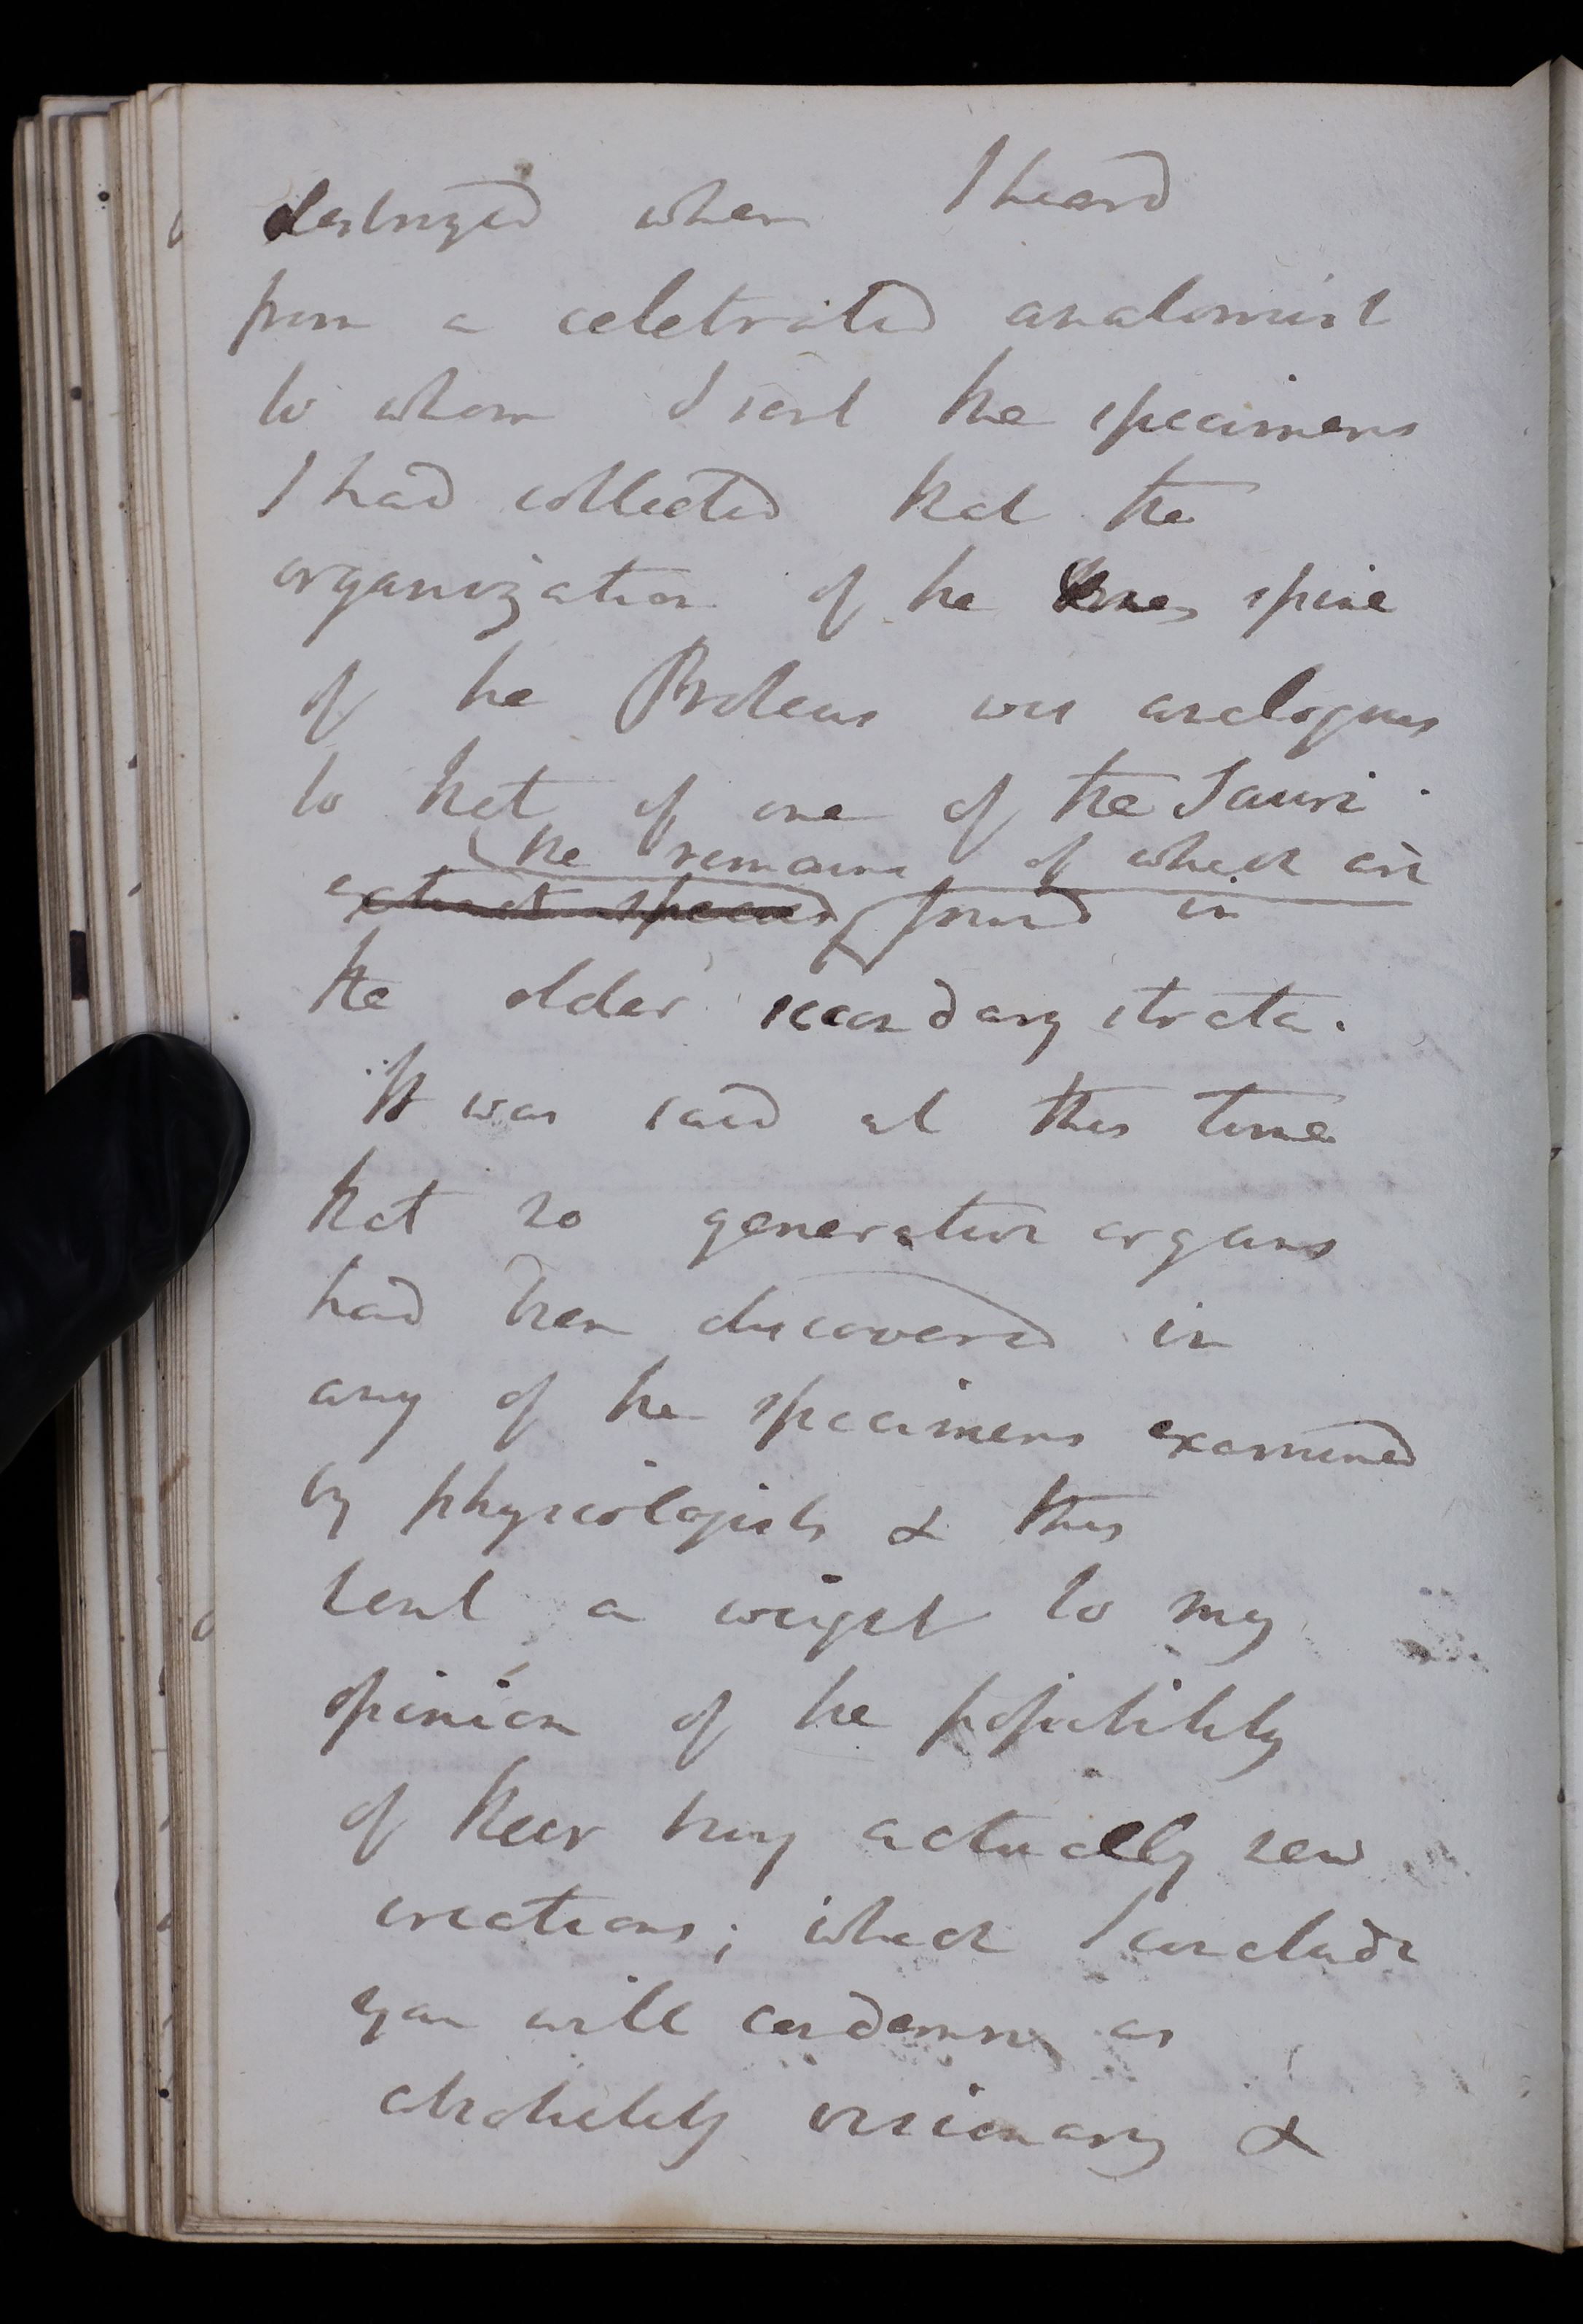 destroyed when I heard
from a celebrated anatomist
to whom I sent the specimens
I had collected that the
organization of the spine
of the Proteus was analogous
to that of one of the Sauri
the remains of which are
extinct species found in
the older secondary strata.
It was said at this time
that no generative organs
had been discovered in
any of the specimens examined
by physiologists & this
lent a weight to my
opinion of the possibility
of their being actually new
creations; which I conclude
you will condemn as
absolutely visionary &